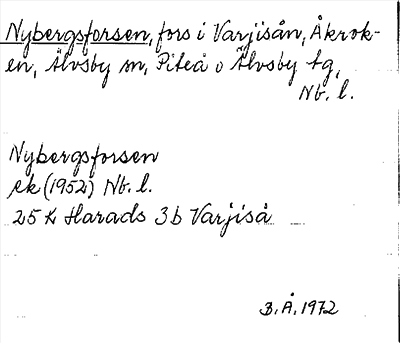 Nybergsforsen, fors i Varjisån, Åkrok-
en, Älvsby sn, Piteå o Älvsby tg,
Nb. l.
Nybergsforsen
ek (1952) Nb. l.
25 K Harads 3b Varjiså
B.Å. 1972